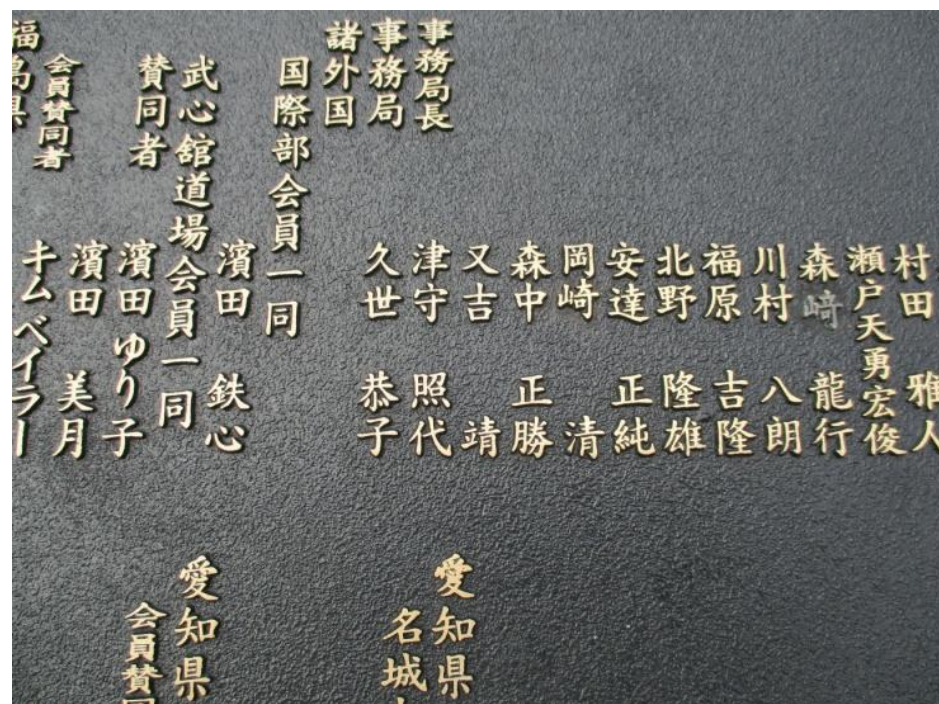 村田 雅人
瀬戸天勇宏俊
森﨑 龍行
川村 八朗
福原 吉隆
北野 隆雄
安達 正純
岡崎 清
森中 正勝
又吉 靖
事務局長 津守 照代
事務局 久世 恭子
諸外国
国際部会員一同
濱田 鉄心
武心舘道場会員一同
賛同者 濱田 ゆり子
濱田 美月
会員賛同者 キムベイラー
福島県
愛知県
名城
愛知県
会員賛